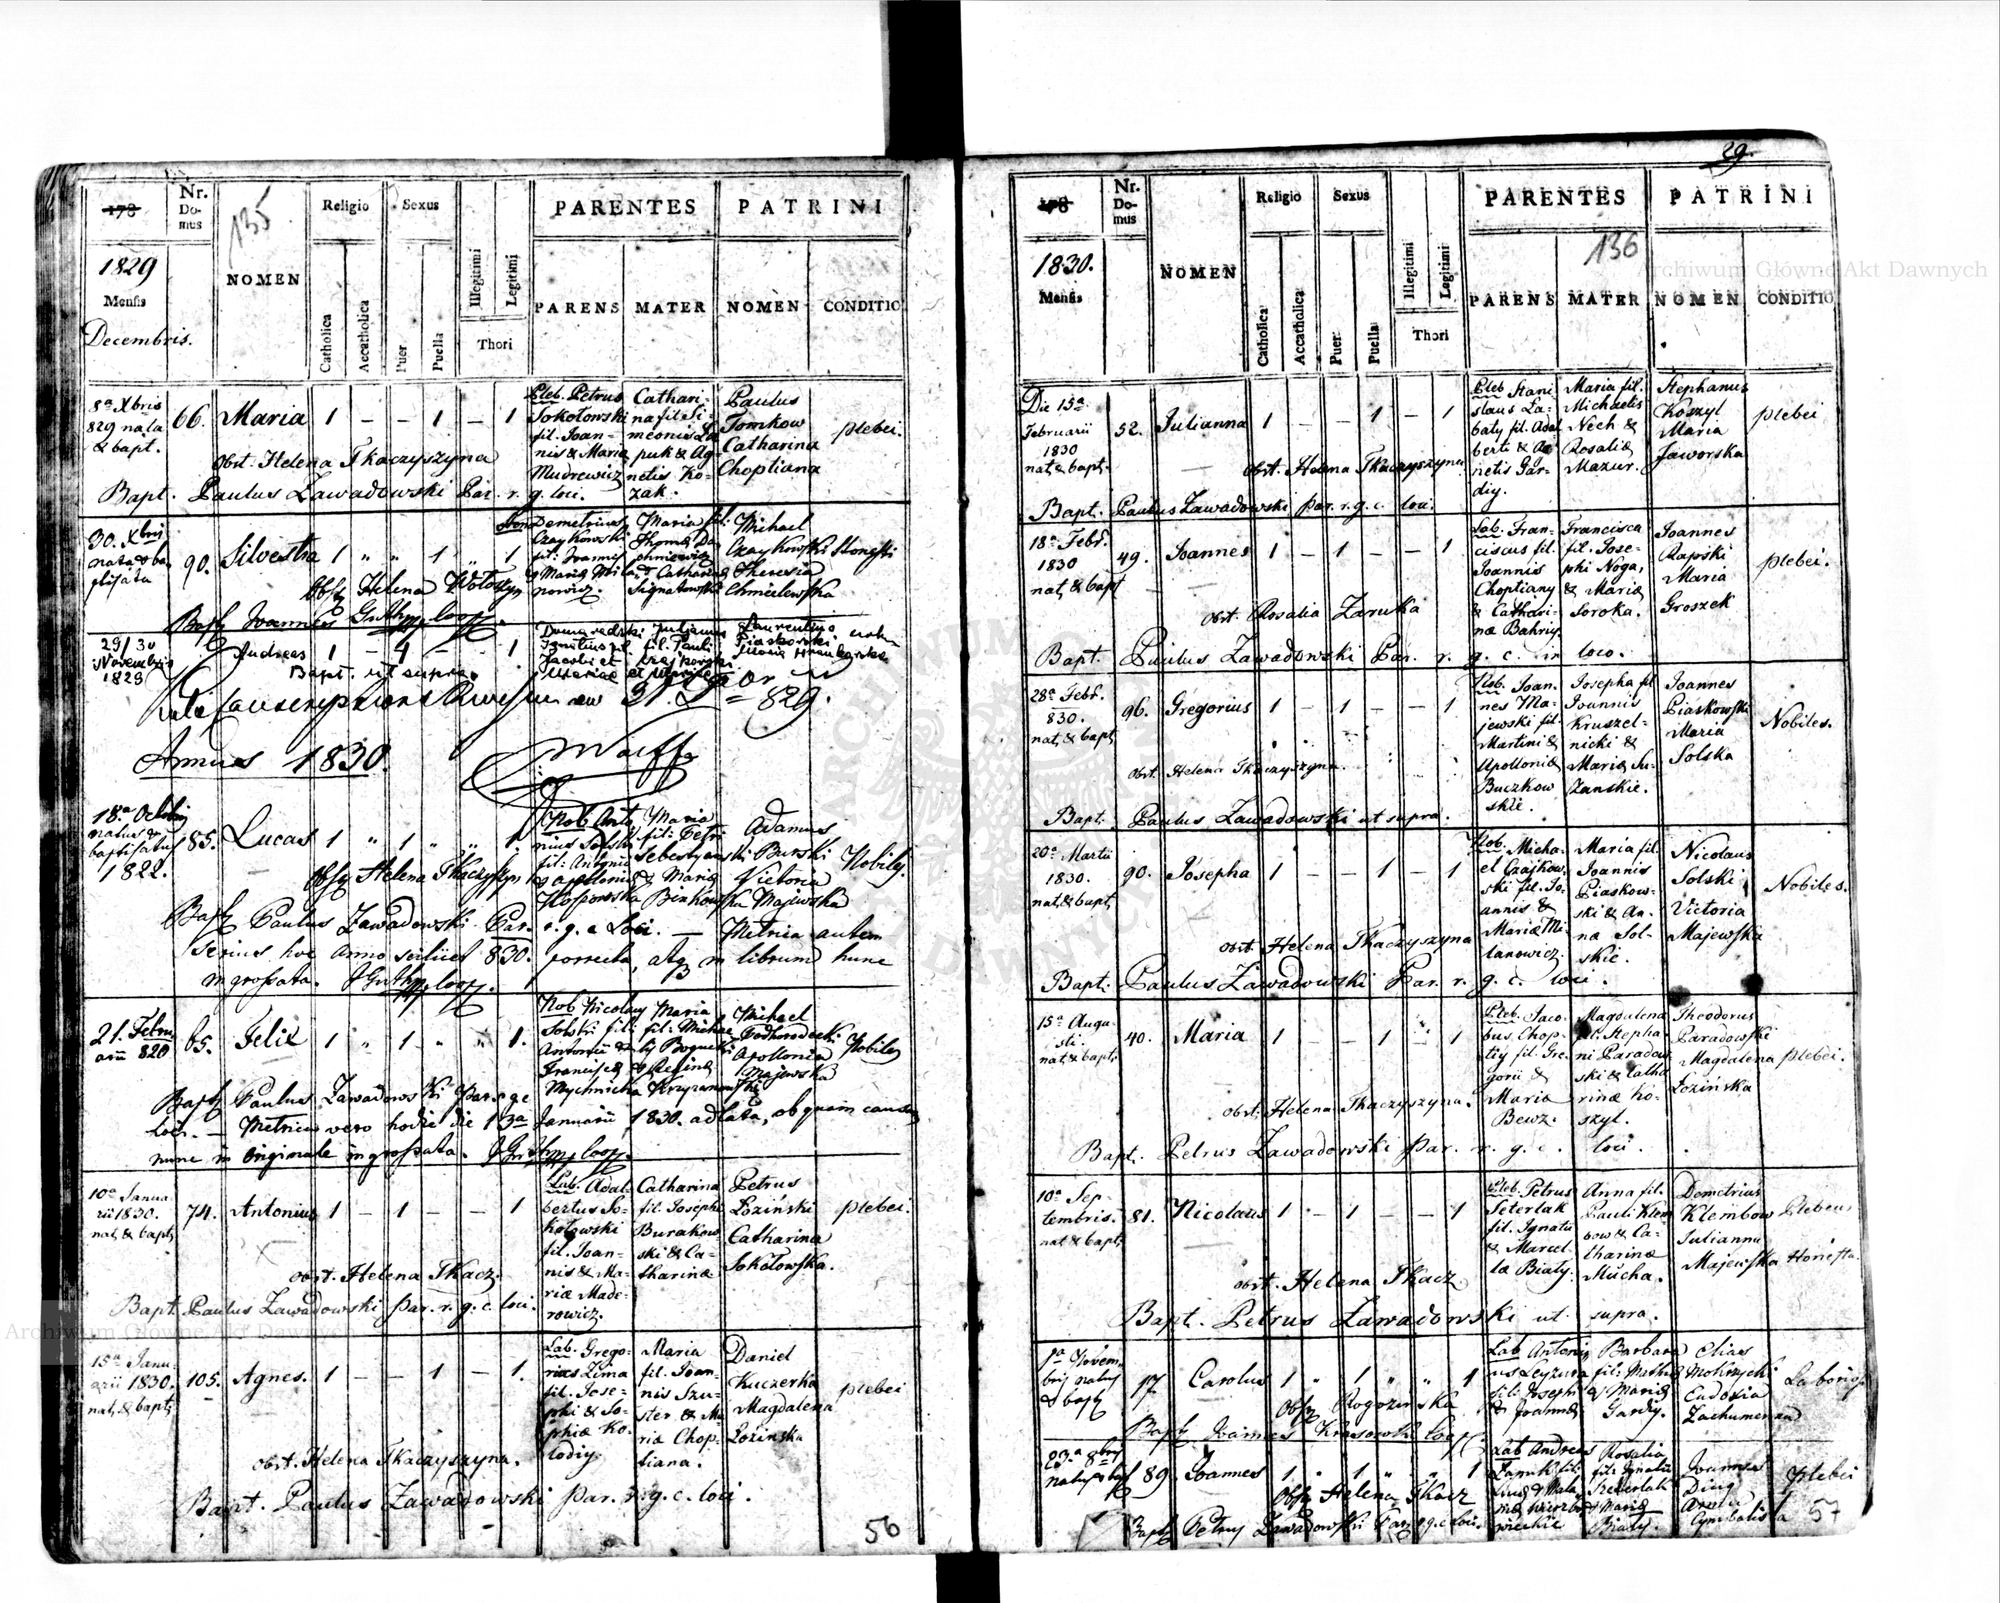 135
178
Nr. Domus
NOMEN
Religio
Sexus
PARENTES
PATRINI
1829
Mensis
Decembris.
Catholica
Accatholica
Puer
Puella
Illegitimi
Legitimi
Thori
PARENS
MATER
NOMEN
CONDITIO
8a Xbris 829 nata & bapt.
66. Maria 1 – – 1 – 1
Pleb. Petrus Sokołowski fil. Joannis & Maria Mudrewicz
Catharina fil. Simeonis & Agnetis Kozak.
Paulus Tomkow Catharina Choptiana
plebei.
obst. Helena Tkaczyszyna
Bapt. Paulus Zawadowski Par. r. g. loci.
30. Xbris nata & baptisata
90. Silvestra 1 " " 1 " 1
Demetrius Czaykowski fil: Joannis & Maria
Maria fil. Thoma & Catharina
Michael Czaykowski Theresia Chmielewska
Honesti
Obst Helena
Bapt Joannes
29/30 Novembris 1829
Andreas 1 – 1 – – 1
Ignatius fil. Jacobi et Mariae
Julianna fil. Pauli
Laurentius Piaskowski Maria
Bapt. ut supra.
31. 829.
Annus 1830.
18.a Octobris natus & baptisatus 1822.
85. Lucas 1 " 1 " " 1
Nob Antonius Solski fil: Antonii & Apollonia
Maria fil: Petri & Maria
Adamus Burski Victoria Majewska
Nobiles.
Obst Helena Tkaczyszyn
Bapt Paulus Zawadowski Par. r. g. c Loci. — Metrica autem
serius hoc anno scilicet 830. porrecta, atq in librum hunc
ingrossata.
21. Februarii 820
65. Felix 1 " 1 " " 1.
Nob Nicolaus Solski fil: Antonii &
Maria fil: Michaelis & Regina
Michael Podhorodecki Apollonia Majewska
Nobiles
Bapt Paulus Zawadowski Par. r g c
Loci. — Metrica vero hodie die 13a Januarii 1830. adlata, ob quam causam
nunc in Originale ingrossata.
10a Januarii 1830. nat, & bapt,
74. Antonius 1 – 1 – – 1
Lab. Adalbertus Sokołowski fil. Joannis & Mariæ Maderowicz.
Catharina fil. Josephi Burakowski & Catharinæ
Petrus Łoziński Catharina Sokołowska.
plebei.
obst. Helena Tkacz.
Bapt. Paulus Zawadowski par. r. g. c. loci.
15a Januarii 1830. nat, & bapt,
105. Agnes. 1 – – 1 – 1.
Lab. Gregorius Zima fil. Josephi & Sophiæ Kolodiy.
Maria fil. Joannis Szuster & Mariæ Choptiana.
Daniel Kuczerka Magdalena Łozinska
plebei
obst. Helena Tkaczyszyna.
Bapt. Paulus Zawadowski par. r. g. c. loci.
56
29.
136
178
Nr. Domus
NOMEN
Religio
Sexus
PARENTES
PATRINI
1830.
Mensis
Catholica
Accatholica
Puer
Puella
Illegitimi
Legitimi
Thori
PARENS
MATER
NOMEN
CONDITIO
Die 15a Februarii 1830 nat, & bapt,
52. Julianna 1 – – 1 – 1
Pleb Stanislaus Labaty fil. Adalberti & Agnetis Gardiy.
Maria fil. Michaelis Nech & Rosaliæ Mazur.
Stephanus Koszyl Maria Jaworska
plebei
obst. Helena Tkaczyszyna
Bapt. Paulus Zawadowski par. r. g. c. loci.
18a Febr. 1830 nat, & bapt
49. Joannes 1 – 1 – – 1
Lab. Franciscus fil. Joannis Choptiany & Catharinæ Bahriy.
Francisca fil. Josephi Noga, & Mariæ Soroka.
Joannes Rapski Maria Groszek
plebei.
obst. Rosalia Zaruka
Bapt. Paulus Zawadowski Par. r. g. c. in loco.
28a Febr. 830. nat, & bapt,
96. Gregorius 1 – 1 – – 1
Nob. Joannes Majewski fil. Martini & Apolloniæ Buczkowskie.
Josepha fil Joannis Kruszelnicki & Mariæ Suzanskie.
Joannes Piaskowski Maria Solska
Nobiles.
obst. Helena Tkaczyszyna.
Bapt. Paulus Zawadowski ut supra.
20a Martii 1830. nat, & bapt,
90. Josepha 1 – – 1 – 1
Nob. Michael Czajkowski fil. Joannis & Mariæ Milanowicz.
Maria fil. Joannis Piaskowski & Annæ Solskie.
Nicolaus Solski Victoria Majewska
Nobiles.
obst. Helena Tkaczyszyna
Bapt. Paulus Zawadowski Par. r. g. c. loci.
15a Augusti. nat, & bapt,
40. Maria 1 – – 1 – 1
Pleb. Jacobus Choptiy fil. Gregorii & Mariæ Bewz.
Magdalena fil. Stephani Paradowski & Catharinæ Koszyl.
Theodorus Paradowski Magdalena Łozińska
plebei.
obst. Helena Tkaczyszyna.
Bapt. Petrus Zawadowski par. r. g. c. loci.
10a Septembris. nat & bapt,
81. Nicolaus 1 – 1 – – 1
Pleb. Petrus Seterlak fil. Ignatii & Marcellæ Biały.
Anna fil. Pauli Klembow & Catharinæ Mucha.
Demetrius Klembow Julianna Majewska
Plebeus Honesta.
obst. Helena Tkacz
Bapt. Petrus Zawadowski ut supra.
1a Novembris natus & bapt
17. Carolus 1 " 1 " " 1
Lab Antonius fil: Josephi & Joanna
Barbara fil: Mathei & Maria Gardy.
Elias Mokrzycki Eudoxia
Laboriosi
Obst Rogozinska
Bapt Joannes
23a 8bris natus & bapt
89. Joannes 1 " 1 " " 1
Lab Andreas
Rosalia fil: Ignatii & Maria Biały.
Joannes
plebei
Obst Helena Tkacz
Bapt Petrus Zawadowski Par. r g. c loci.
57
Archiwum Główne Akt Dawnych
Archiwum Główne Akt Dawnych